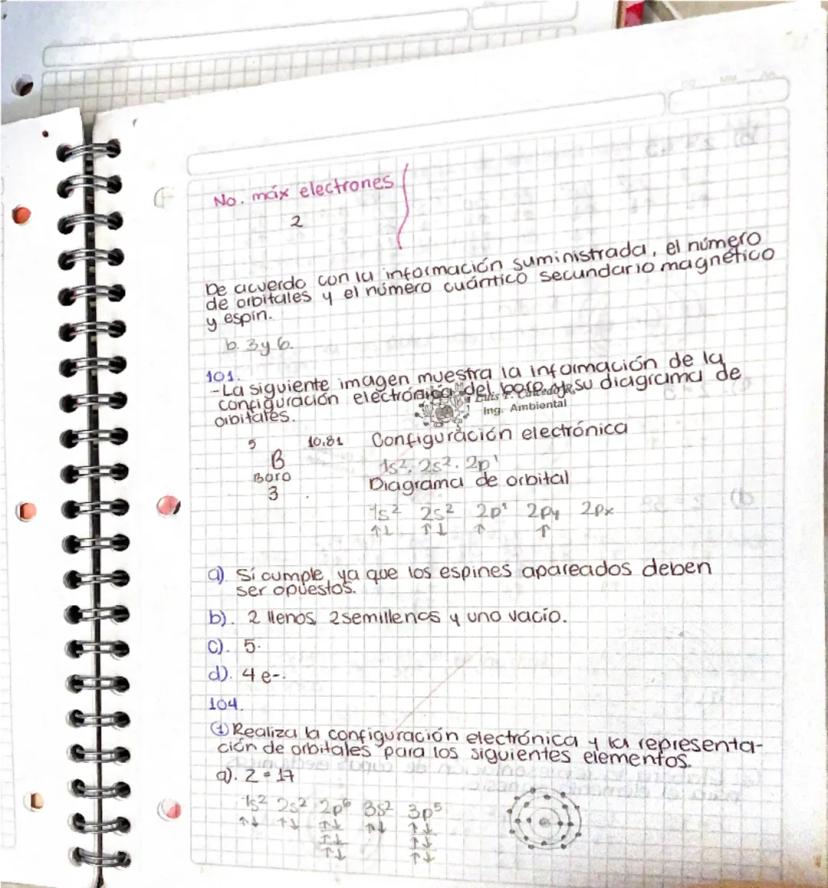 No. máx electrones
2
De acuerdo con la información suministrada, el número
de orbitales y el número cuántico secundario magnético
y espín.
b. 3 y 6.
101.
- La siguiente imagen muestra la información de la
configuración electrónica del boro y su diagrama de
orbitales.
Ing. Ambiental
5 10.81 Configuración electrónica
B 1s². 2s². 2p¹
Boro Diagrama de orbital
3
1s² 2s² 2p¹ 2py 2px
↑↓ ↑↓ ↑ ↑
a). Sí cumple ya que los espines apareados deben
ser opuestos.
b). 2 llenos 2 semillenos y uno vacío.
c). 5.
d). 4 e-.
104.
① Realiza la configuración electrónica y la representa-
ción de orbitales para los siguientes elementos.
a). Z = 17
1s² 2s² 2p⁶ 3s² 3p⁵
↑↓ ↑↓ ↑↓ ↑↓ ↑↓
↑↓ ↑↓
↑↓ ↑↓